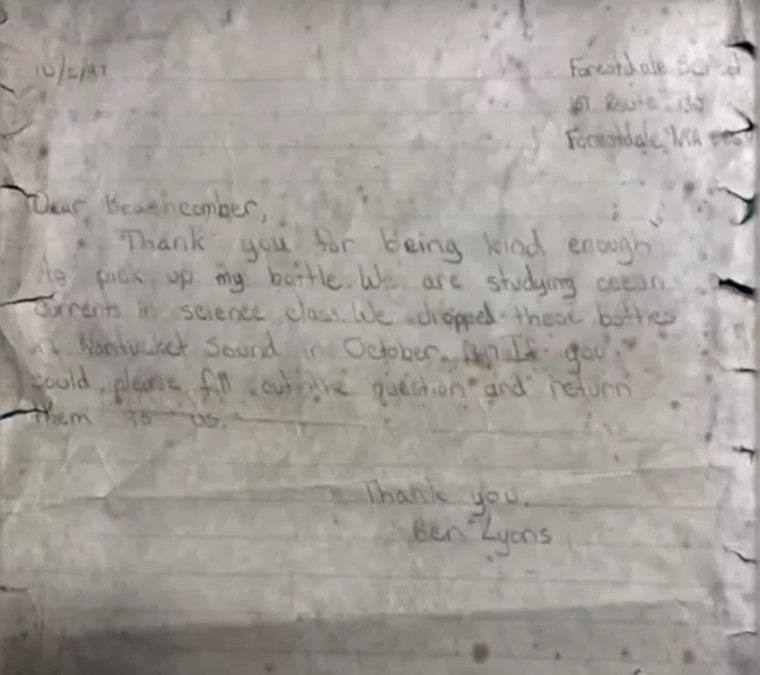 Forestdale
Route
Forestdale, MA
Dear Beachcomber,
Thank you for being kind enough
to pick up my bottle. We are studying ocean
currents in science class. We dropped these bottles
in Nantucket Sound in October. If you
could please fill out the question and return
them to us.
Thank you,
Ben Lyons